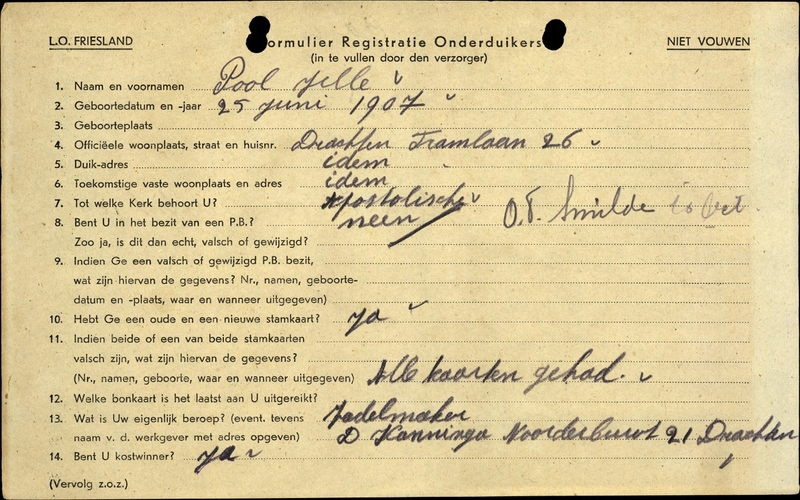 L.O. FRIESLAND Formulier Registratie Onderduikers NIET VOUWEN
(in te vullen door den verzorger)
1. Naam en voornamen Pool Jelle
2. Geboortedatum en -jaar 25 juni 1907
3. Geboorteplaats
4. Officiëele woonplaats, straat en huisnr. Drachten Tramlaan 26
5. Duik-adres idem
6. Toekomstige vaste woonplaats en adres idem
7. Tot welke Kerk behoort U? Apostolische
8. Bent U in het bezit van een P.B.? neen O.T. Smilde
Zoo ja, is dit dan echt, valsch of gewijzigd?
9. Indien Ge een valsch of gewijzigd P.B. bezit,
wat zijn hiervan de gegevens? Nr., namen, geboorte-
datum en -plaats, waar en wanneer uitgegeven)
10. Hebt Ge een oude en een nieuwe stamkaart? ja
11. Indien beide of een van beide stamkaarten
valsch zijn, wat zijn hiervan de gegevens?
(Nr., namen, geboorte, waar en wanneer uitgegeven) Alle kaarten gehad.
12. Welke bonkaart is het laatst aan U uitgereikt?
13. Wat is Uw eigenlijk beroep? (event. tevens Zadelmaker
naam v. d. werkgever met adres opgeven) D Kanninga Noorderbuurt 21 Drachten
14. Bent U kostwinner? ja
(Vervolg z.o.z.)